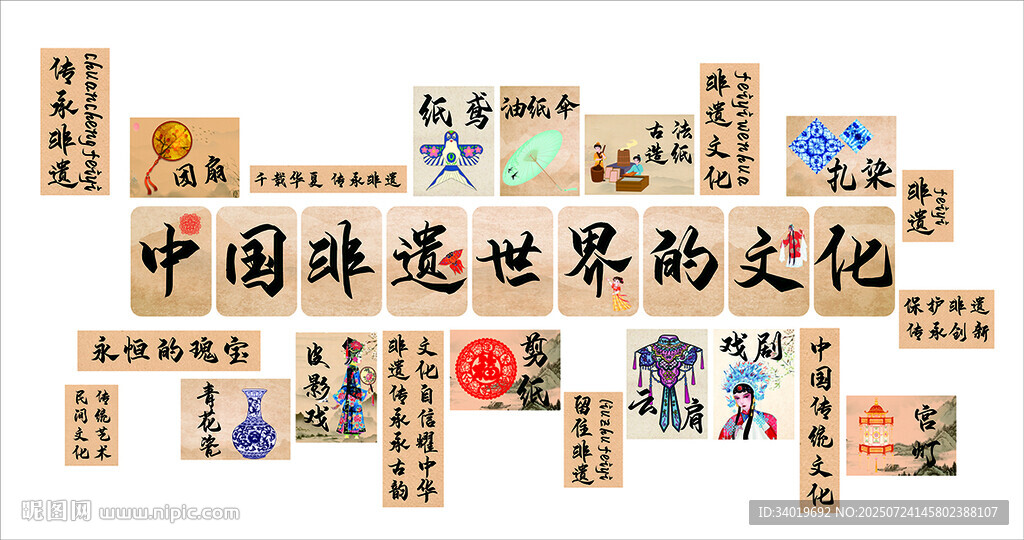 传承非遗
chuanchengfeiyi
团扇
千载华夏 传承非遗
纸鸢
油纸伞
古法
造纸
非遗文化
feiyiwenhua
扎染
非遗
feiyi
中国非遗世界的文化
保护非遗
传承创新
永恒的瑰宝
传统艺术
民间文化
青花瓷
皮影戏
文化自信耀中华
非遗传承承古韵
剪纸
留住非遗
liuzhufeiyi
云肩
戏剧
中国传统文化
宫灯
昵图网 www.nipic.com
ID:34019692 NO:20250724145802388107